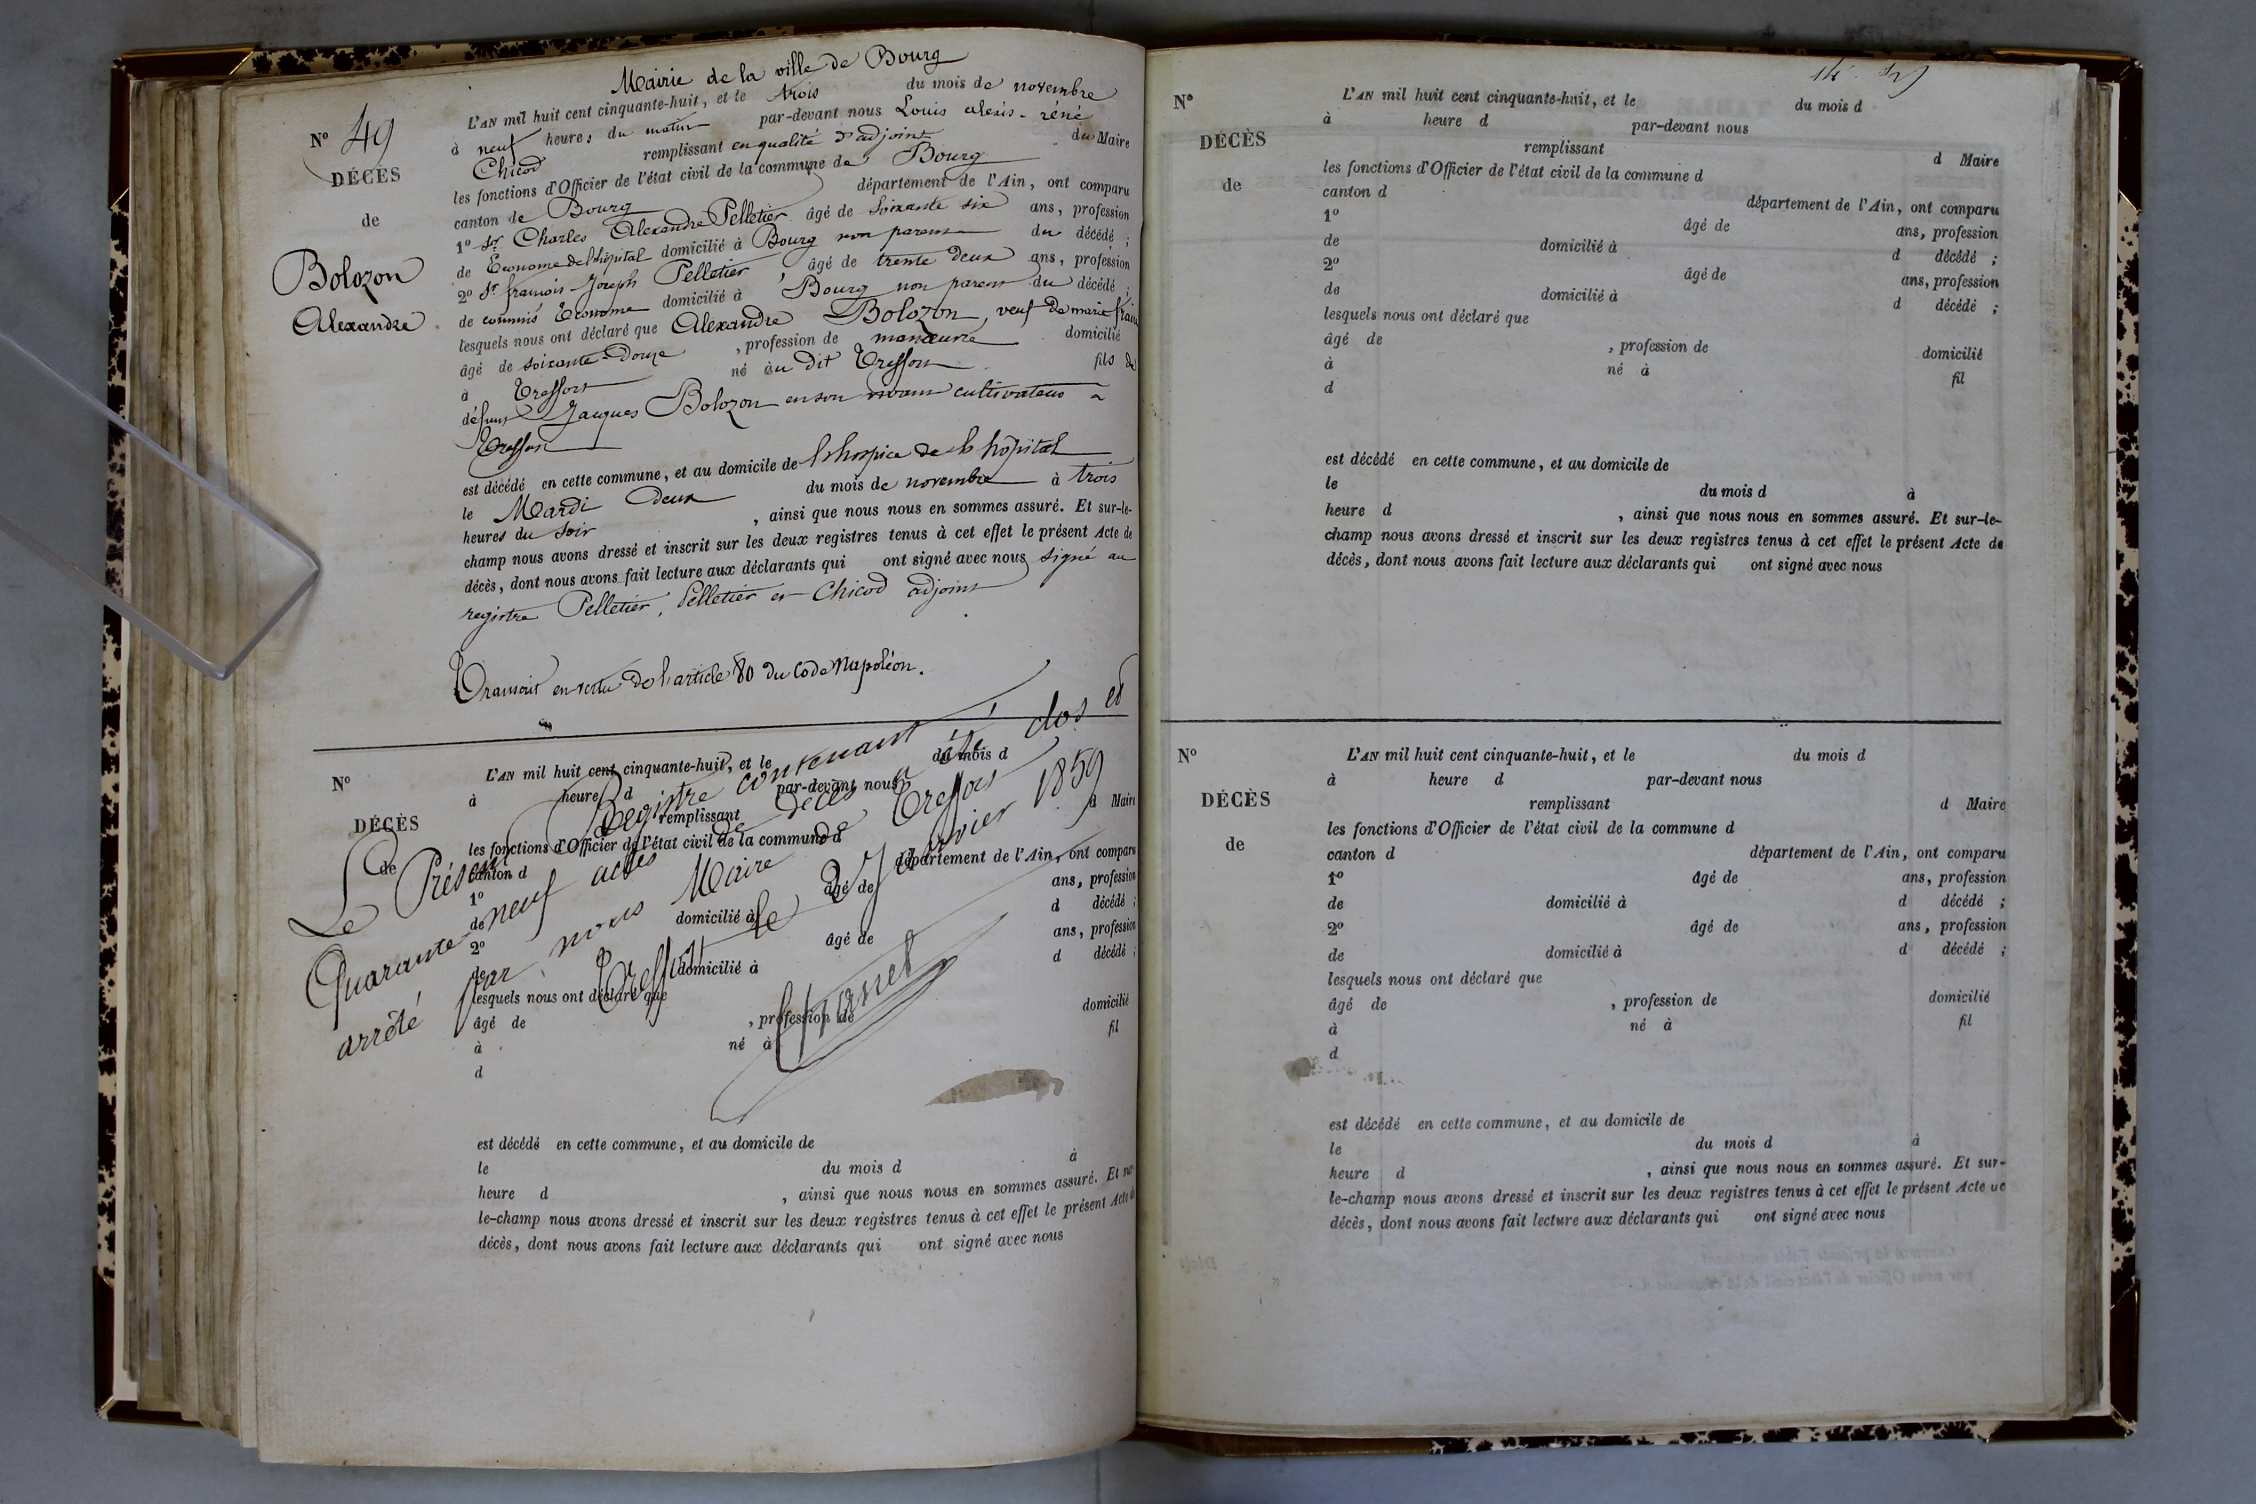 Mairie de la ville de Bourg
N° 49
DÉCÈS
de
Bolozon
Alexandre
L'AN mil huit cent cinquante-huit, et le trois du mois de novembre
à neuf heures du matin par-devant nous Louis alexis-réné
Chicod remplissant en qualité d'adjoint du Maire
les fonctions d'Officier de l'état civil de la commune de Bourg
canton de Bourg département de l'Ain, ont comparu
1° Sr Charles Alexandre Pelletier âgé de soixante six ans, profession
de Econome de l'hôpital domicilié à Bourg non parent du décédé ;
2° Sr francois Joseph Pelletier, âgé de trente deux ans, profession
de commis Econome domicilié à Bourg non parent du décédé ;
lesquels nous ont déclaré que Alexandre Bolozon, veuf de marie
âgé de soixante-douze, profession de manœuvre domicilié
à Treffort né au dit Treffort fils de
défunt Jacques Bolozon en son vivant cultivateur a
Treffort
est décédé en cette commune, et au domicile de l'hospice de l'hôpital
le Mardi deux du mois de novembre à trois
heures du soir, ainsi que nous nous en sommes assuré. Et sur-le-
champ nous avons dressé et inscrit sur les deux registres tenus à cet effet le présent Acte de
décès, dont nous avons fait lecture aux déclarants qui ont signé avec nous signé au
registre Pelletier, Pelletier et Chicod adjoint
Transcrit en vertu de l'article 80 du Code Napoléon.
N°
DÉCÈS
de
L'AN mil huit cent cinquante-huit, et le du mois d
à heure d par-devant nous
remplissant d Maire
les fonctions d'Officier de l'état civil de la commune d
canton d département de l'Ain, ont comparu
1° âgé de ans, profession
de domicilié à d décédé ;
2° âgé de ans, profession
de domicilié à d décédé ;
lesquels nous ont déclaré que
âgé de , profession de domicilié
à né à fil
d
Le Présent Registre contenant
Quarante neuf actes de décès a été clos et
arrêté par nous Maire de Treffort
Treffort le 2 Janvier 1859
est décédé en cette commune, et au domicile de
le du mois d à
heure d , ainsi que nous nous en sommes assuré. Et sur-
le-champ nous avons dressé et inscrit sur les deux registres tenus à cet effet le présent Acte de
décès, dont nous avons fait lecture aux déclarants qui ont signé avec nous
N°
DÉCÈS
de
L'AN mil huit cent cinquante-huit, et le du mois d
à heure d par-devant nous
remplissant d Maire
les fonctions d'Officier de l'état civil de la commune d
canton d département de l'Ain, ont comparu
1° âgé de ans, profession
de domicilié à d décédé ;
2° âgé de ans, profession
de domicilié à d décédé ;
lesquels nous ont déclaré que
âgé de , profession de domicilié
à né à fil
d
est décédé en cette commune, et au domicile de
le du mois d à
heure d , ainsi que nous nous en sommes assuré. Et sur-le-
champ nous avons dressé et inscrit sur les deux registres tenus à cet effet le présent Acte de
décès, dont nous avons fait lecture aux déclarants qui ont signé avec nous
N°
DÉCÈS
de
L'AN mil huit cent cinquante-huit, et le du mois d
à heure d par-devant nous
remplissant d Maire
les fonctions d'Officier de l'état civil de la commune d
canton d département de l'Ain, ont comparu
1° âgé de ans, profession
de domicilié à d décédé ;
2° âgé de ans, profession
de domicilié à d décédé ;
lesquels nous ont déclaré que
âgé de , profession de domicilié
à né à fil
d
est décédé en cette commune, et au domicile de
le du mois d à
heure d , ainsi que nous nous en sommes assuré. Et sur-
le-champ nous avons dressé et inscrit sur les deux registres tenus à cet effet le présent Acte de
décès, dont nous avons fait lecture aux déclarants qui ont signé avec nous